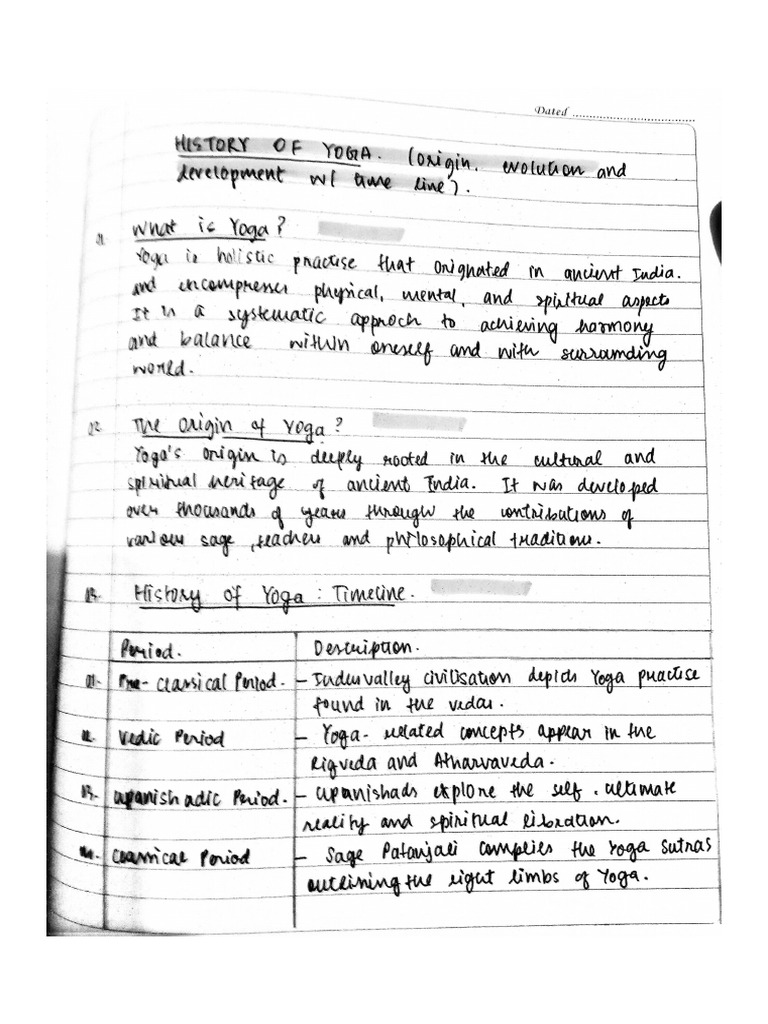 Dated ....................................
HISTORY OF YOGA. (origin, evolution and
development w/ time line).
01. What is Yoga?
Yoga is holistic practise that orignated in ancient India.
and encompresses physical, mental, and spiritual aspects
It is a systematic approch to achieving harmony
and balance within oneself and with surramding
world.
02. The origin of Yoga?
Yoga's origin is deeply rooted in the cultural and
spiritual heritage of ancient India. It was developed
over thousands of years through the contributions of
various sage, teachers and philosophical traditions.
03. History of Yoga : Timeline.
Period. Description.
01. Pre-classical Period. - Indusvalley civilisation depicts Yoga practise
found in the vedas.
02. Vedic Period - Yoga-related concepts appear in the
Rigveda and Atharvaveda.
03. upanishadic Period. - upanishads explore the self, ultimate
reality and spiritual libration.
04. Classical Period - Sage Patanjali complies the Yoga Sutras
outlining the eight limbs of Yoga.